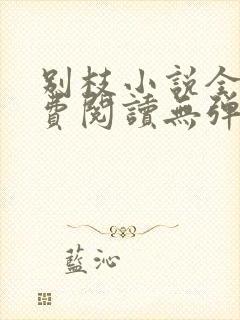 别枝小說全
費閱讀無弹
藍沁